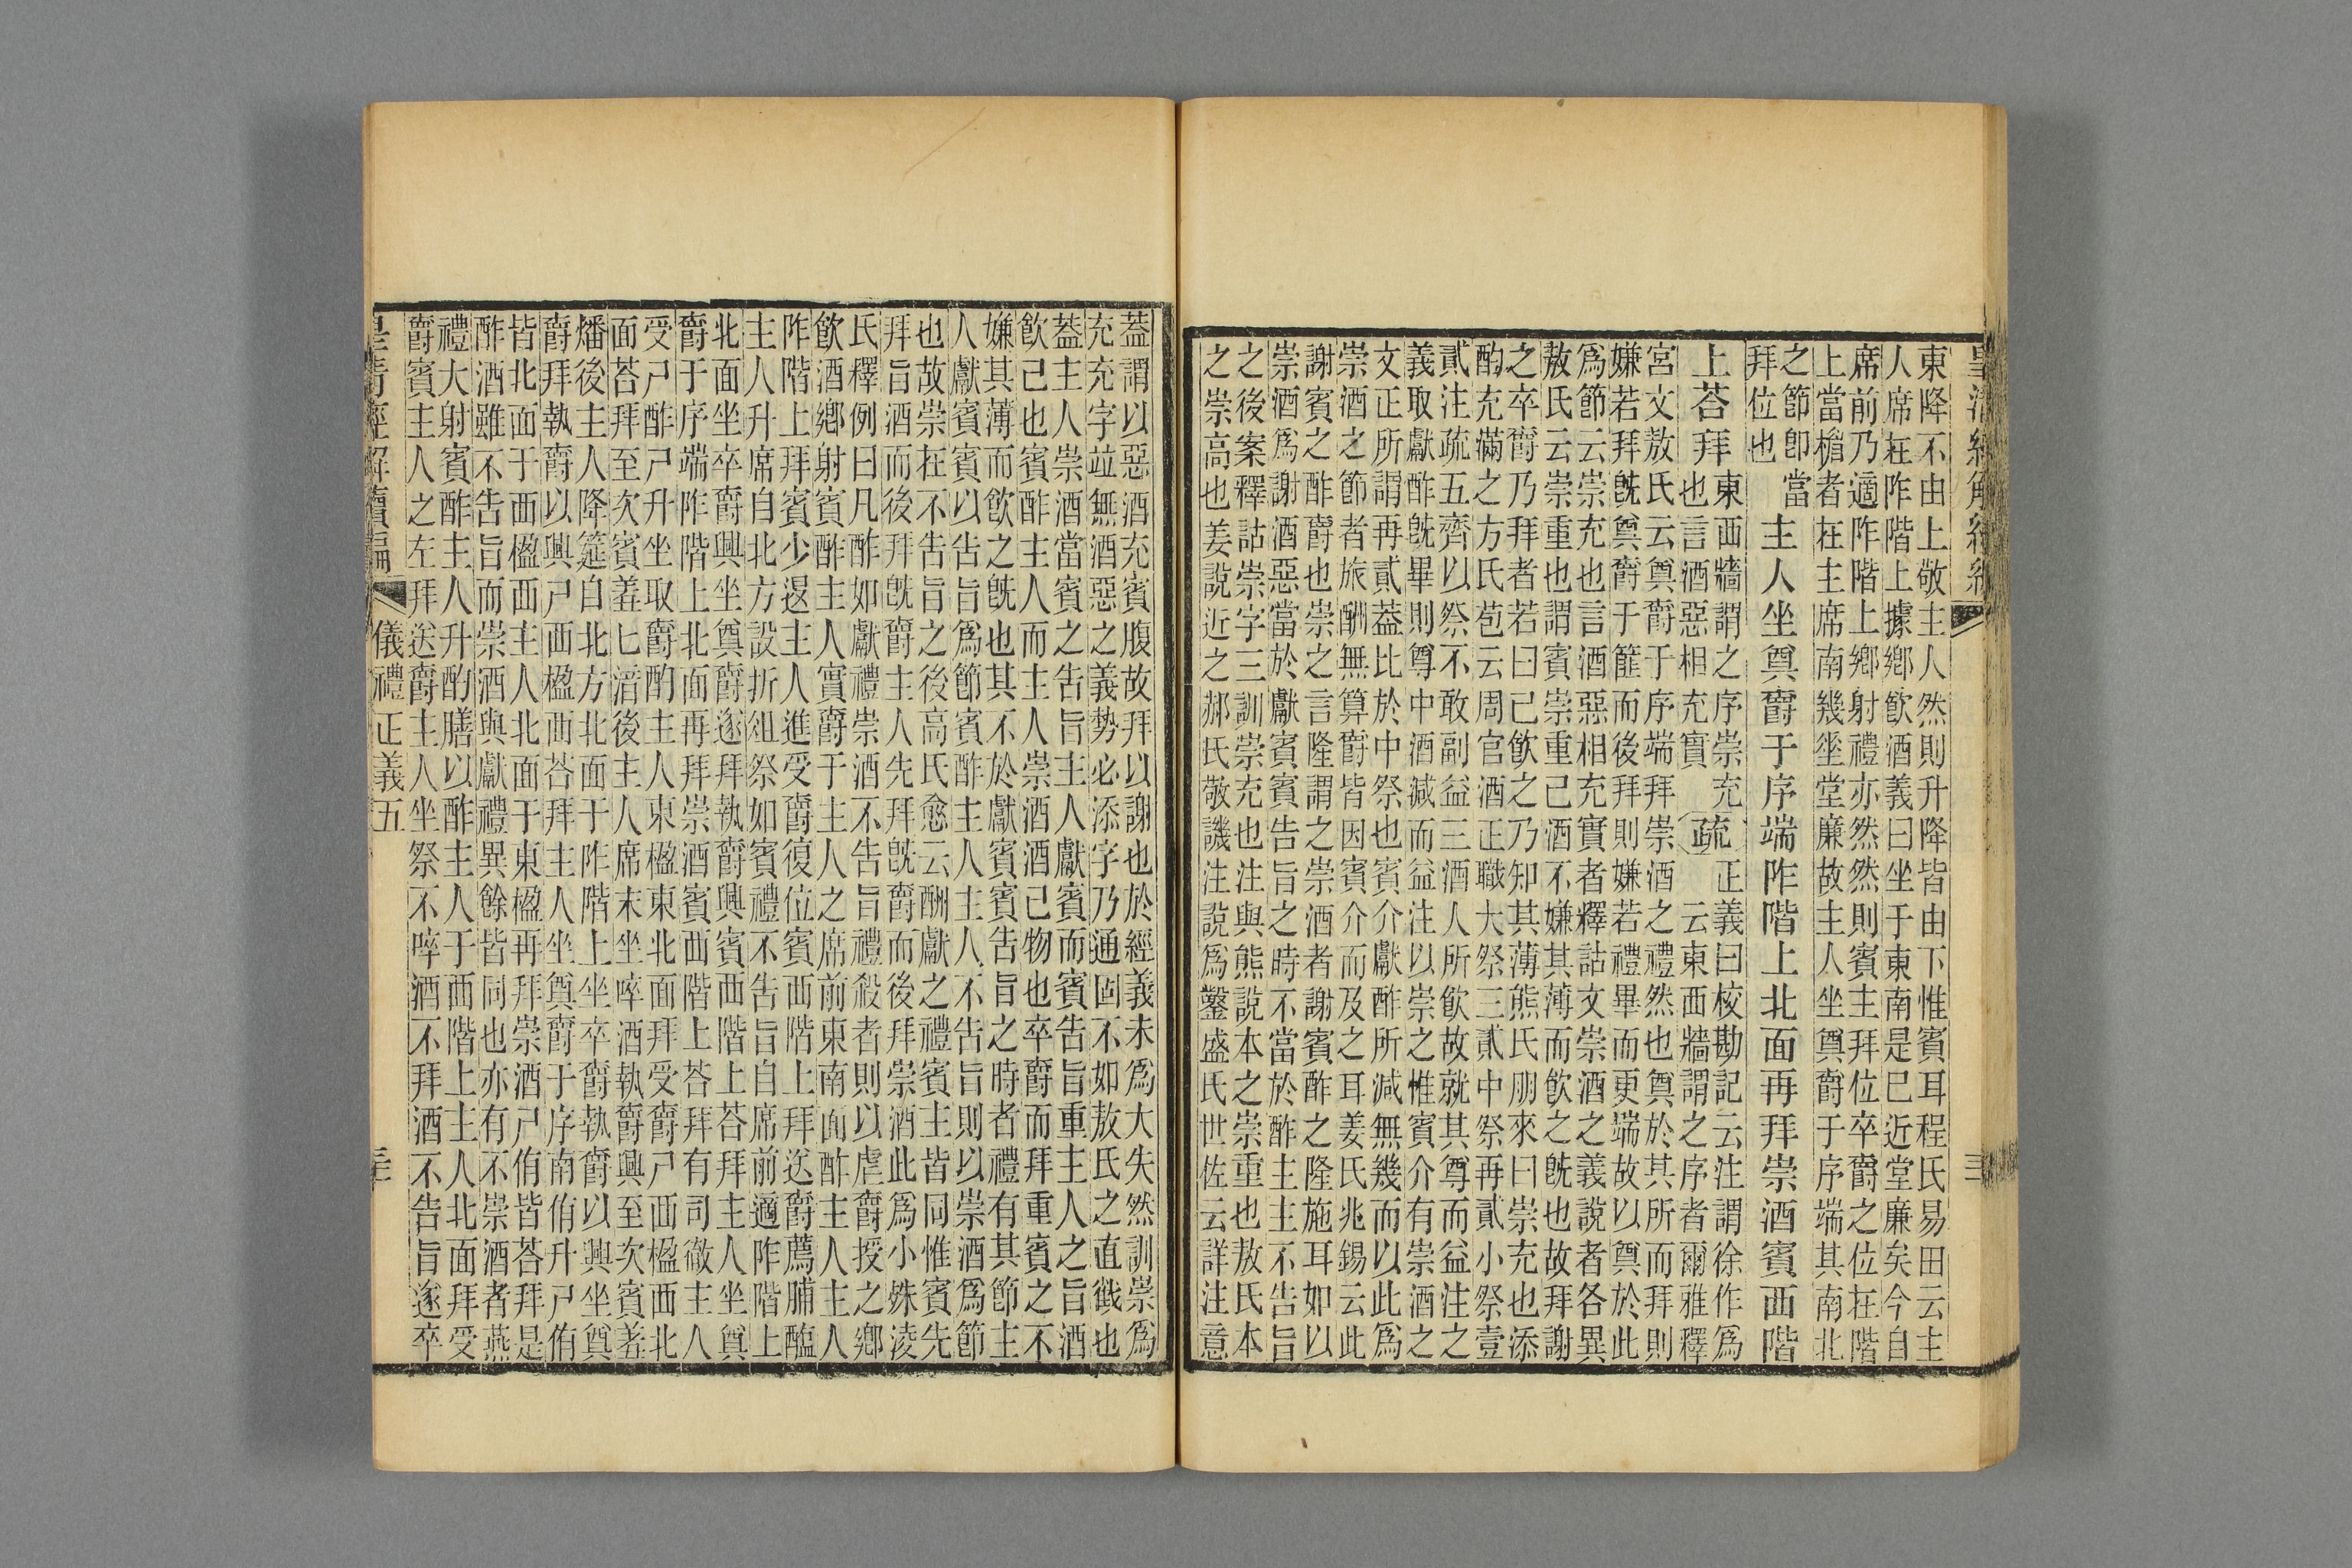 東降不由上敬主人然則升降皆由下惟賓耳程氏易田云主
人席在阼階上據鄉飲酒義曰坐于東南是巳近堂廉矣今自
席前乃適阼階上鄉射禮亦然然則賓主拜位卒爵之位在階
上當楣者在主席南幾坐堂廉故主人坐奠爵于序端其南北
之節卽當
拜位也
主人坐奠爵于序端阼階上北面再拜崇酒賓西階
上荅拜
東西牆謂之序崇充
也言酒惡相充實
疏
正義曰校勘記云注謂徐作爲
云東西牆謂之序者爾雅釋
宮文敖氏云奠爵于序端拜崇酒之禮然也奠於其所而拜則
嫌若拜旣奠爵于篚而後拜則嫌若禮畢而更端故以奠於此
爲節云崇充也言酒惡相充實者釋詁文崇酒之義說者各異
敖氏云崇重也謂賓崇重己酒不嫌其薄而飲之旣也故拜謝
之卒爵乃拜者若曰己飲之乃知其薄熊氏朋來曰崇充也添
酌充滿之方氏苞云周官酒正職大祭三貳中祭再貳小祭壹
貳注疏五齊以祭不敢副益三酒人所飲故就其尊而益注之
義取獻酢旣畢則尊中酒減而益注以崇之惟賓介有崇酒之
文正所謂再貳蓋比於中祭也賓介獻酢所減無幾而以此爲
崇酒之節者旅酬無算爵皆因賓介而及之耳姜氏兆錫云此
謝賓之酢爵也崇之言隆謂之崇酒者謝賓酢之隆施耳如以
崇酒爲謝酒惡當於獻賓賓告旨之時不當於酢主主不告旨
之後案釋詁崇字三訓崇充也注與熊說本之崇重也敖氏本
之崇高也姜說近之郝氏敬譏注說爲鑿盛氏世佐云詳注意
皇清經解續編
蓋謂以惡酒充賓腹故拜以謝也於經義未爲大失然訓崇爲
充充字竝無酒惡之義勢必添字乃通固不如敖氏之直截也
蓋主人崇酒當賓之告旨主人獻賓而賓告旨重主人之旨酒
飲己也賓酢主人而主人崇酒酒己物也卒爵而拜重賓之不
嫌其薄而飲之旣也其不於獻賓賓告旨之時者禮有其節主
人獻賓賓以告旨爲節賓酢主人主人不告旨則以崇酒爲節
也故崇在不告旨之後高氏愈云酬獻之禮賓主皆同惟賓先
拜旨酒而後拜旣爵主人先拜旣爵而後拜崇酒此爲小殊淩
氏釋例曰凡酢如獻禮崇酒不告旨禮殺者則以虛爵授之鄉
飲酒鄉射賓酢主人實爵于主人之席前東南面酢主人主人
阼階上拜賓少退主人進受爵復位賓西階上拜送爵薦脯醢
主人升席自北方設折俎祭如賓禮不告旨自席前適阼階上
北面坐卒爵興坐奠爵遂拜執爵興賓西階上荅拜主人坐奠
爵于序端阼階上北面再拜崇酒賓西階上荅拜有司徹主人
受尸酢尸升坐取爵酌主人東楹東北面拜受爵尸西楹西北
面荅拜至次賓羞匕湆後主人席末坐啐酒執爵興至次賓羞
燔後主人降筵自北方北面于阼階上坐卒爵執爵以興坐奠
爵拜執爵以興尸西楹西荅拜主人坐奠爵于序南侑升尸侑
皆北面于西楹西主人北面于東楹再拜崇酒尸侑皆荅拜是
酢酒雖不告旨而崇酒與獻禮異餘皆同也亦有不崇酒者燕
禮大射賓酢主人升酌膳以酢主人于西階上主人北面拜受
爵賓主人之左拜送爵主人坐祭不啐酒不拜酒不告旨遂卒
皇清經解續編
儀禮正義五